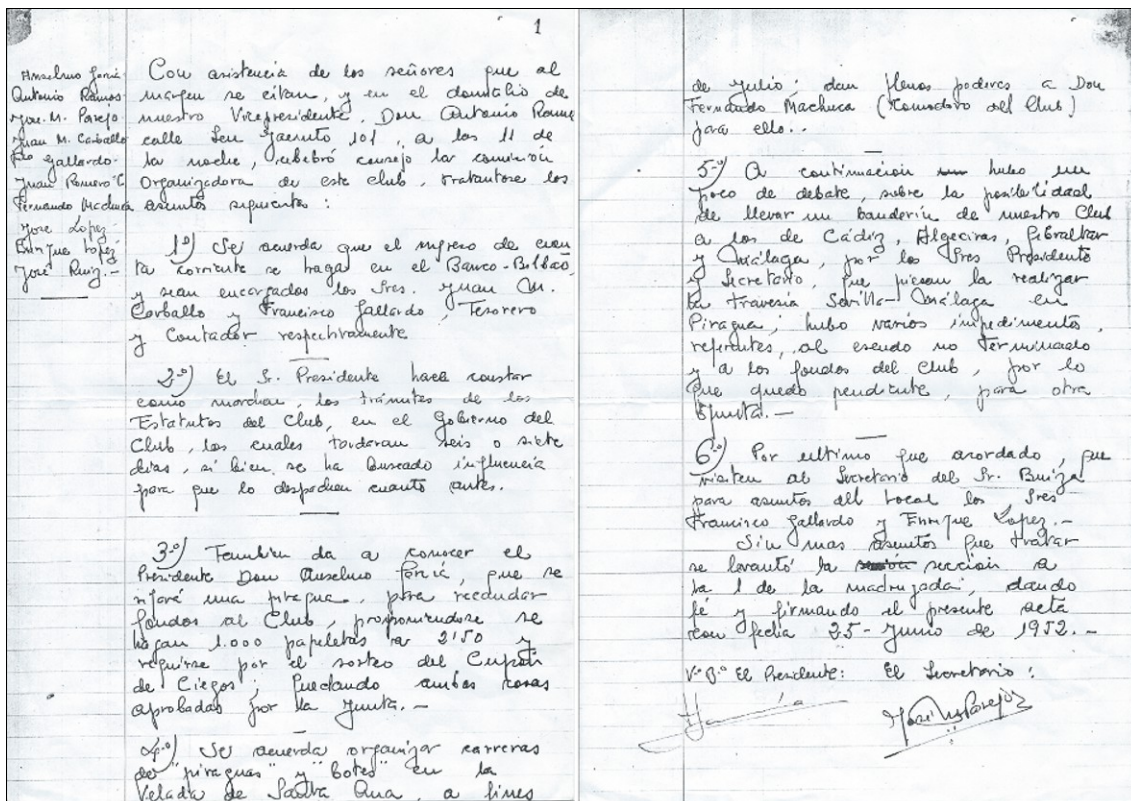 1
Anselmo García
Antonio Ramos
Jose. M. Parejo
Juan M. Carballo
Fco Gallardo.
Juan Romero C
Fernando Machuca
Jose Lopez.
Enrique Lopez
José Ruiz.-
Con asistencia de los señores que al
margen se citan, y en el domicilio de
nuestro Vicepresidente, Don Antonio Ramos
calle San Jacinto 101, a las 11 de
la noche, celebró consejo la comisión
Organizadora de este club, tratantose los
asuntos siguientes:
1º) Se acuerda que el ingreso de cuen
ta corriente se haga en el Banco-Bilbao
y sean encargados los Sres. Juan M.
Carballo y Francisco Gallardo, Tesorero
y Contador respectivamente
2º) El Sr. Presidente hace constar
como marchan, los trámites de los
Estatutos del Club, en el Gobierno del
Club, los cuales tardaran seis o siete
dias, si bien se ha buscado influencia
para que lo despachen cuanto antes.
3º) Tambien da a conocer el
Presidente Don Anselmo García, que se
rifará una piragua, para recaudar
fondos al Club, proponiendose se
hagan 1.000 papeletas a 2'50 y
regirse por el sorteo del Cupón
de Ciegos; quedando ambas cosas
aprobadas por la Junta.-
4º) Se acuerda organizar carreras
de "piraguas" y "botes" en la
Velada de Santa Ana, a fines
de Julio; dan plenos poderes a Don
Fernando Machuca (Comodoro del Club)
para ello.-
5º) A continuación hubo un
poco de debate, sobre la posibilidad
de llevar un banderin de nuestro Club
a los de Cádiz, Algeciras, Gibraltar
y Málaga, por los Sres Presidente
y Secretario, que piensan la realizar
la travesía Sevilla-Málaga en
Piragua; hubo varios impedimentos,
referentes, al escudo no terminado
y a los fondos del Club, por lo
que quedo pendiente, para otra
Junta.-
6º) Por ultimo que acordado, que
visiten al Secretario del Sr. Buiza
para asuntos del local los Sres
Francisco Gallardo y Enrique Lopez.-
Sin mas asuntos que tratar
se levantó la sección a
la 1 de la madrugada; dando
fé y firmando el presente acta
con fecha 25-Junio de 1952.-
Vº Bº El Presidente: El Secretario: